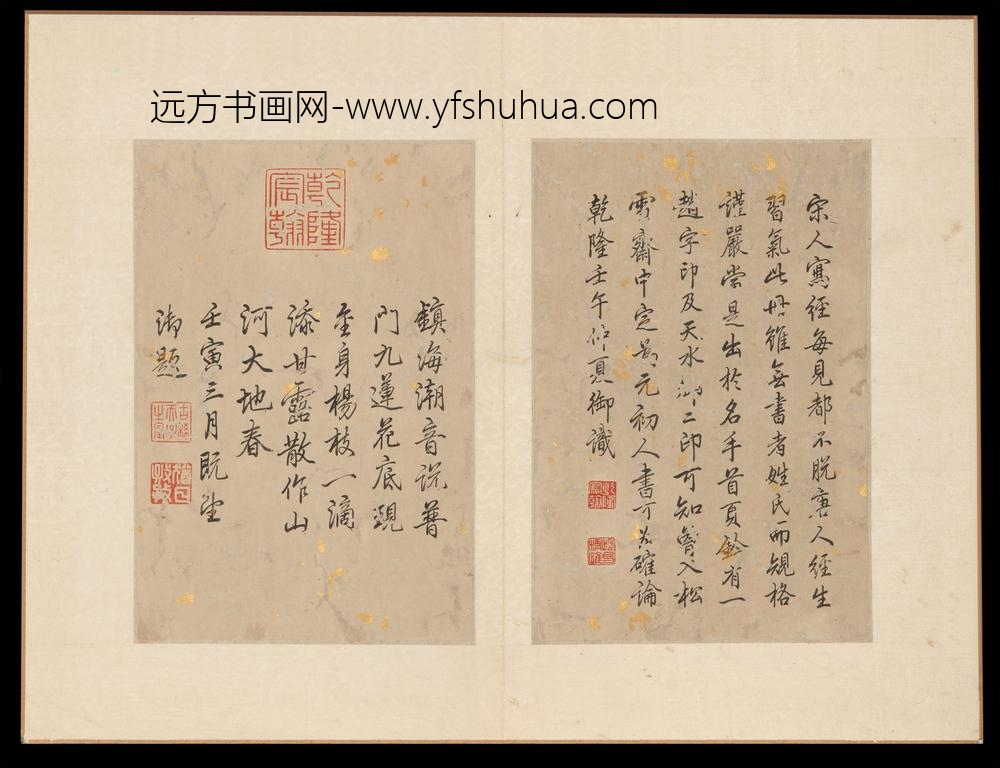 远方书画网-www.yfshuhua.com
宋人寫經每見都不脫唐人經生
習氣此冊雖無書者姓氏而規格
謹嚴當是出於名手首頁鈐有一
趙字印及天水郡二印可知曾入松
雪齋中定為元初人書可為確論
乾隆壬午仲夏御識
乾隆宸翰
鎮海潮音說普
門九蓮花底現
金身楊枝一滴
添甘露散作山
河大地春
壬寅三月既望
御題
乾隆宸翰